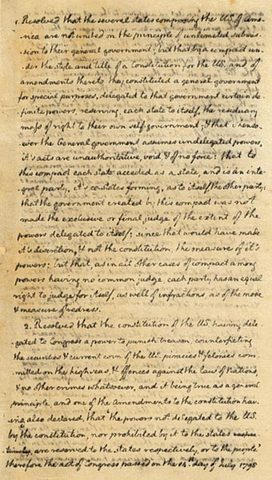 1. Resolved that the several states composing the US. of Ame-
rica are not united on the principle of unlimited submis-
sion to their general government; but that by a compact un-
der the style and title of a Constitution for the US. and of
amendments thereto, they constituted a general government
for special purposes, delegated to that government certain de-
finite powers, reserving, each state to itself, the residuary
mass of right to their own self-government; & that whenso-
ever the General government assumes undelegated powers,
it's acts are unauthoritative, void, & of no force: that to
this compact each state acceded as a state, and is an inte-
gral party, it's co-states forming, as to itself, the other party:
that the government created by this compact was not
made the exclusive or final judge of the extent of the
powers delegated to itself; since that would have made
it's discretion, & not the constitution, the measure of it's
powers: but that, as in all other cases of compact among
powers having no common judge, each party has an equal
right to judge for itself, as well of infractions, as of the mode
& measure of redress.
2. Resolved that the constitution of the US. having dele-
gated to Congress a power to punish treason, counterfeiting
the securities & current coin of the US. piracies & felonies com-
mitted on the high seas, & offences against the law of nations,
& no other crimes whatsoever, and it being true as a general
principle, and one of the Amendments to the constitution hav-
ing also declared, that 'the powers not delegated to the US.
by the constitution, nor prohibited by it to the states
are reserved to the states respectively, or to the people'
therefore the act of Congress passed on the 14th. day of July 1798